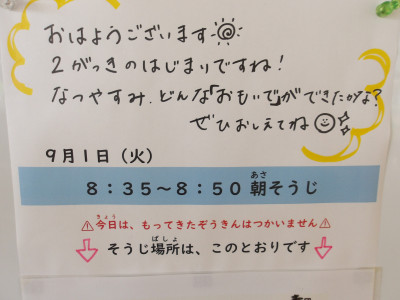 おはようございます
2がっきのはじまりですね!
なつやすみ、どんな「おもいで」ができたかな?
ぜひおしえてね
9月1日（火）
8：35～8：50 朝そうじ
あさ
きょう
⚠今日は、もってきたぞうきんはつかいません⚠
ばしょ
そうじ場所は、このとおりです